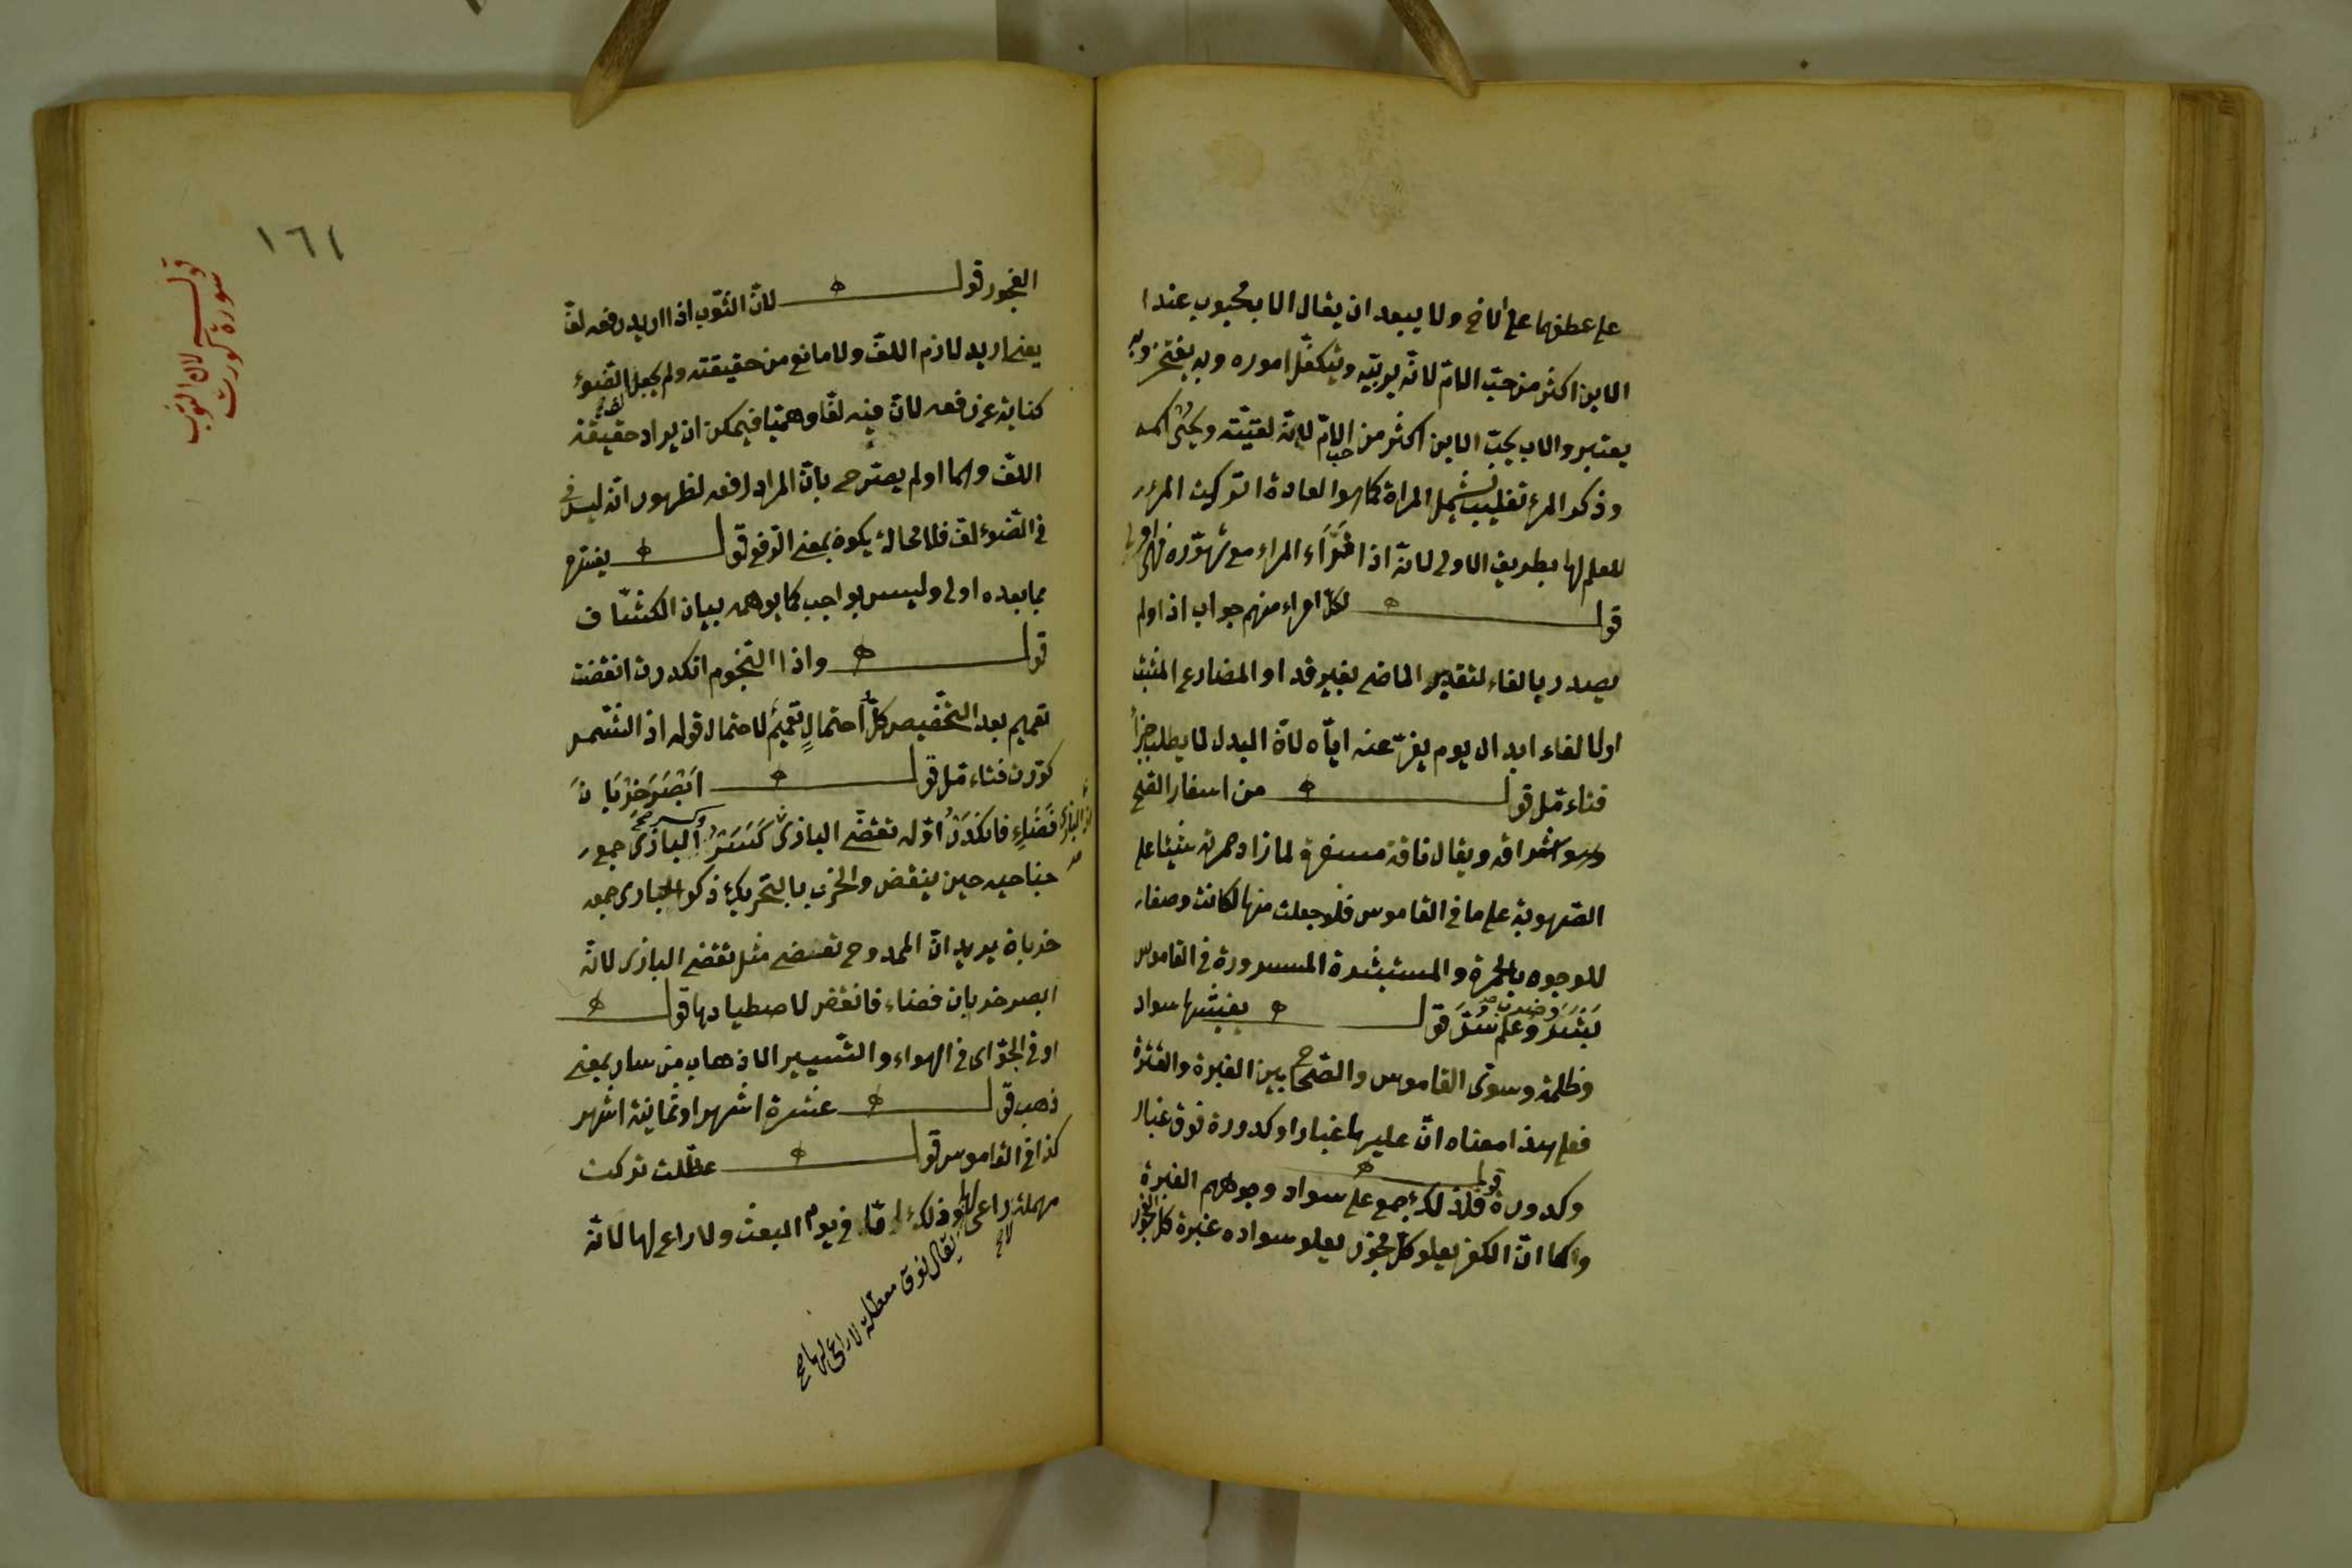 على عطفهما على الاخ ولا يبعد ان يقال الاب محبوب عند ا
الابن اكثر من حبّ الامّ لانّه يربّيه ويتكفّل اموره وبه يفتخر وبه
يعتبر والاب يحبّ الابن اكثر من حب الامّ لانّه
وذكر المرء تغليب يشمل المراة كما هو العادة او تركت المرء
للعلم لها بطريق الاولى لانّه اذا فرّ المرء مع تهوّره
قوله لكلّ امرء منهم جواب اذا ولم
يصدر بالفاء لتقدير الماضى بغير قد او المضارع المثبت
اولا لفاء ابدال يوم يفرّ عنه ايّاه لانّ البدل لا يطلب جزأ
فتاءمّل قوله من اسفار الصّبح
وهو اشراقه ويقال ناقة مسفرة لما زاد حمرته شيئا على
الصّهوبة على ما فى القاموس فلو جعلت منها لكانت وصفا
للوجوه بالحمرة والمستبشرة المسرورة فى القاموس
بَشَرَ وعلم سُرَّ قوله يغشيها سواد
وظلمة وسوّى القاموس والصّحاح بين الغبرة والقترة
فعلى هذا معناه انّ عليها غبارا وكدورة فوق غبار
وكدورة قوله فلذلك جمع على سواد وجوههم الغبرة
وكما انّ الكفر يعلو كلّ فجور يعلو سواده غبرة كل الفجور
١٦٤
قوله لان الثوب
سورة كورت
الفجور قوله لانّ الثّوب اذا اريد رفعه لفّ
يعنى اريد لازم اللفّ ولا مانع من حقيقته ولم يجعل لف الضّوء
كناية عن رفعه لانّ فيه لفّا وهميّا فيمكن ان يراد حقيقة
اللفّ وانما لم يصرّح بانّ المراد رفعه لظهور انّه ليس
فى الضّوء لفّ فلا محالة يكون بمعنى الرّفع قوله يفسّره
ما بعده اولى وليس بواجب كما يوهمه بيان الكشّاف
قوله واذا النّجوم انكدرت انقضت
تعميم بعد التّخصيص كلّ احتمالٍ تعميم لاحتمال قوله اذا الشّمس
كوّرت فتاءمّل قوله اَبْصَرَ خَرْبَانَ
فَضَاءٍ فانكَدَرْ اوّله تقضّى البازى كَسَرَ البازى جمع
جناحيه حين ينقض والخرب بالتّحريك ذكر الحبارى جمعه
خربان يريد انّ الممدوح تقضى مثل تقضى البازى لانّه
ابصر خربان فضاء فانقض لاصطيادها قوله
او فى الجوّ اى فى الهواء والتّسيير الاذهاب من سار بمعنى
ذهب قوله عشرة اشهر او ثمانية اشهر
كذا فى القاموس قوله عطّلت تركت
مهملة لا راعى لها وذلك امّا فى يوم البعث ولا راعى لها لانّه
يقال نوق معطلة لا راعى لها صح